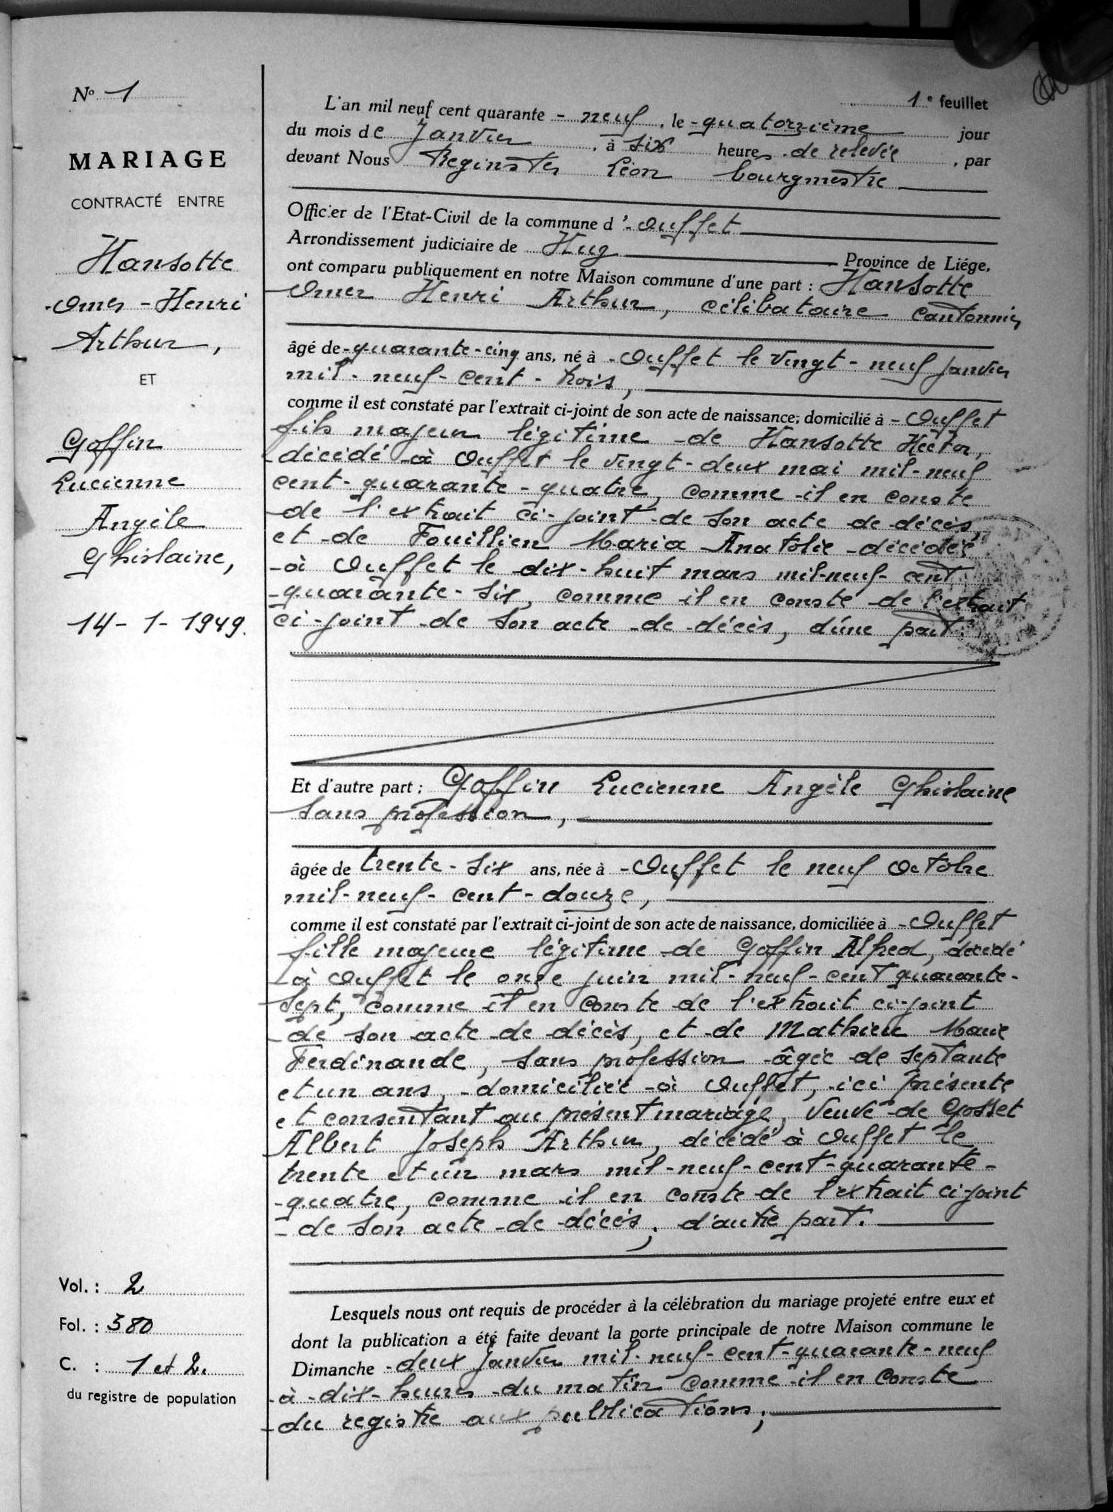 1e feuillet
N° 1
MARIAGE
CONTRACTÉ ENTRE
Hansotte
Omer-Henri
Arthur,
ET
Goffin
Lucienne
Angèle
Ghislaine,
14-1-1949.
L'an mil neuf cent quarante - neuf, le quatorzième jour
du mois de Janvier, à six heures de relevée, par
devant Nous Reginster Léon bourgmestre
Officier de l'Etat-Civil de la commune d'Ouffet
Arrondissement judiciaire de Huy Province de Liége,
ont comparu publiquement en notre Maison commune d'une part : Hansotte
Omer Henri Arthur, célibataire cantonnier
âgé de quarante-cinq ans, né à Ouffet le vingt-neuf janvier
mil-neuf-cent-trois,
comme il est constaté par l'extrait ci-joint de son acte de naissance; domicilié à Ouffet
fils majeur légitime de Hansotte Hector,
décédé à Ouffet le vingt-deux mai mil-neuf
cent-quarante-quatre, comme il en conste
de l'extrait ci-joint de son acte de décès
et de Fouillien Maria Anatolie décédée
à Ouffet le dix-huit mars mil-neuf-cent
quarante-six, comme il en conste de l'extrait
ci-joint de son acte de décès, d'une part.
Et d'autre part : Goffin Lucienne Angèle Ghislaine
sans profession,
âgée de trente-six ans, née à Ouffet le neuf octobre
mil-neuf-cent-douze,
comme il est constaté par l'extrait ci-joint de son acte de naissance, domiciliée à Ouffet
fille majeure légitime de Goffin Alfred, décédé
à Ouffet le onze juin mil-neuf-cent quarante-
sept, comme il en conste de l'extrait ci-joint
de son acte de décès, et de Mathieu Marie
Ferdinande, sans profession âgée de septante
et un ans, domiciliée à Ouffet, ici présente
et consentant au présent mariage, veuve de Gosset
Albert Joseph Arthur, décédé à Ouffet le
trente et un mars mil-neuf-cent-quarante-
-quatre, comme il en conste de l'extrait ci-joint
de son acte de décès, d'autre part.
Vol. : 2
Fol. : 380
C. : 1 et 2.
du registre de population
Lesquels nous ont requis de procéder à la célébration du mariage projeté entre eux et
dont la publication a été faite devant la porte principale de notre Maison commune le
Dimanche deux janvier mil-neuf-cent-quarante-neuf
à dix-heures du matin comme il en conste
du registre aux publications;